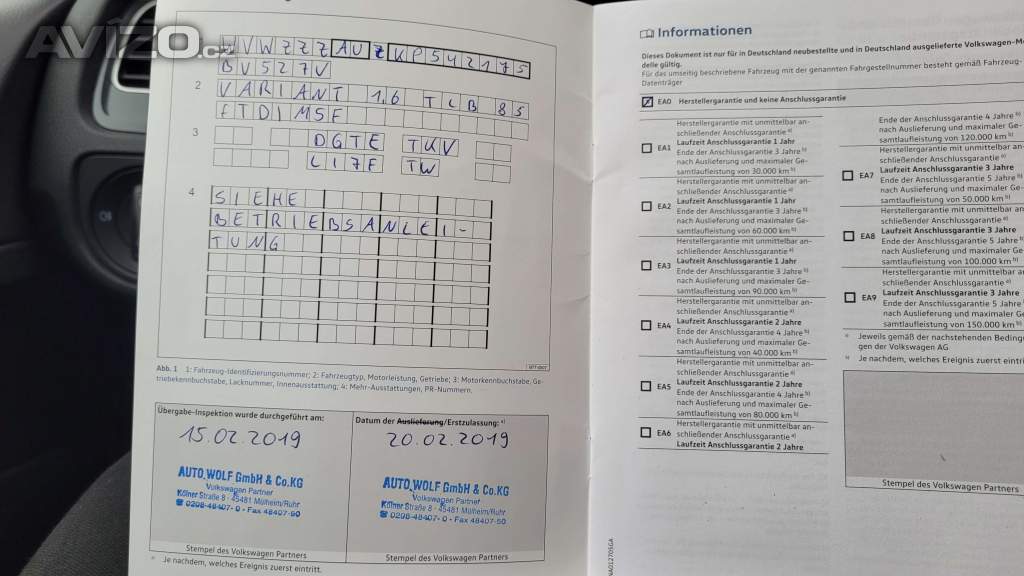 AVÍZO.cz
WVWZZZAUZKP542175
BV527V
2 VARIANT 1,6 TLB 85
FTDIMSF
3 DGTE TKV
LI7F TW
4 SIEHE
BETRIEBSANLEI-
TUNG
Abb. 1 1: Fahrzeug-Identifizierungsnummer; 2: Fahrzeugtyp, Motorleistung, Getriebe; 3: Motorkennbuchstabe, Ge-
triebekennbuchstabe, Lacknummer, Innenausstattung; 4: Mehr-Ausstattungen, PR-Nummern.
Übergabe-Inspektion wurde durchgeführt am:
15.02.2019
AUTO WOLF GmbH & Co.KG
Volkswagen Partner
Kölner Straße 8 · 45481 Mülheim/Ruhr
☎ 0208-48407-0 · Fax 48407-50
Stempel des Volkswagen Partners
Datum der Auslieferung/Erstzulassung: a)
20.02.2019
AUTO WOLF GmbH & Co.KG
Volkswagen Partner
Kölner Straße 8 · 45481 Mülheim/Ruhr
☎ 0208-48407-0 · Fax 48407-50
Stempel des Volkswagen Partners
a) Je nachdem, welches Ereignis zuerst eintritt.
Informationen
Dieses Dokument ist nur für in Deutschland neubestellte und in Deutschland ausgelieferte Volkswagen-Mo-
delle gültig.
Für das umseitig beschriebene Fahrzeug mit der genannten Fahrgestellnummer besteht gemäß Fahrzeug-
Datenträger
EA0 Herstellergarantie und keine Anschlussgarantie
EA1 Herstellergarantie mit unmittelbar an-
schließender Anschlussgarantie a)
Laufzeit Anschlussgarantie 1 Jahr
Ende der Anschlussgarantie 3 Jahre b)
nach Auslieferung und maximaler Ge-
samtlaufleistung von 30.000 km b)
EA2 Herstellergarantie mit unmittelbar an-
schließender Anschlussgarantie a)
Laufzeit Anschlussgarantie 1 Jahr
Ende der Anschlussgarantie 3 Jahre b)
nach Auslieferung und maximaler Ge-
samtlaufleistung von 60.000 km b)
EA3 Herstellergarantie mit unmittelbar an-
schließender Anschlussgarantie a)
Laufzeit Anschlussgarantie 1 Jahr
Ende der Anschlussgarantie 3 Jahre b)
nach Auslieferung und maximaler Ge-
samtlaufleistung von 90.000 km b)
EA4 Herstellergarantie mit unmittelbar an-
schließender Anschlussgarantie a)
Laufzeit Anschlussgarantie 2 Jahre
Ende der Anschlussgarantie 4 Jahre b)
nach Auslieferung und maximaler Ge-
samtlaufleistung von 40.000 km b)
EA5 Herstellergarantie mit unmittelbar an-
schließender Anschlussgarantie a)
Laufzeit Anschlussgarantie 2 Jahre
Ende der Anschlussgarantie 4 Jahre b)
nach Auslieferung und maximaler Ge-
samtlaufleistung von 80.000 km b)
EA6 Herstellergarantie mit unmittelbar an-
schließender Anschlussgarantie a)
Laufzeit Anschlussgarantie 2 Jahre
Ende der Anschlussgarantie 4 Jahre b)
nach Auslieferung und maximaler Ge-
samtlaufleistung von 120.000 km b)
EA7 Herstellergarantie mit unmittelbar an-
schließender Anschlussgarantie a)
Laufzeit Anschlussgarantie 3 Jahre
Ende der Anschlussgarantie 5 Jahre b)
nach Auslieferung und maximaler Ge-
samtlaufleistung von 50.000 km b)
EA8 Herstellergarantie mit unmittelbar an-
schließender Anschlussgarantie a)
Laufzeit Anschlussgarantie 3 Jahre
Ende der Anschlussgarantie 5 Jahre b)
nach Auslieferung und maximaler Ge-
samtlaufleistung von 100.000 km b)
EA9 Herstellergarantie mit unmittelbar an-
schließender Anschlussgarantie a)
Laufzeit Anschlussgarantie 3 Jahre
Ende der Anschlussgarantie 5 Jahre b)
nach Auslieferung und maximaler Ge-
samtlaufleistung von 150.000 km b)
a) Jeweils gemäß der nachstehenden Bedingu
gen der Volkswagen AG
b) Je nachdem, welches Ereignis zuerst eintri
Stempel des Volkswagen Partners